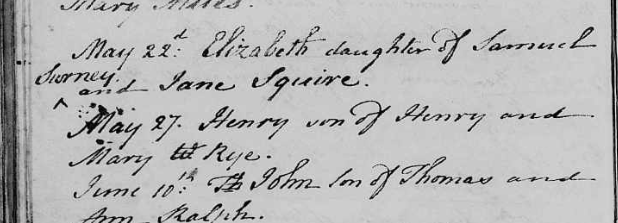 Mary
May 22d: Elizabeth daughter of Samuel
Surney
^ and Jane Squire.
May 27. Henry son of Henry and
Mary Rye.
June 10th: John son of Thomas and
Ann Ralph.